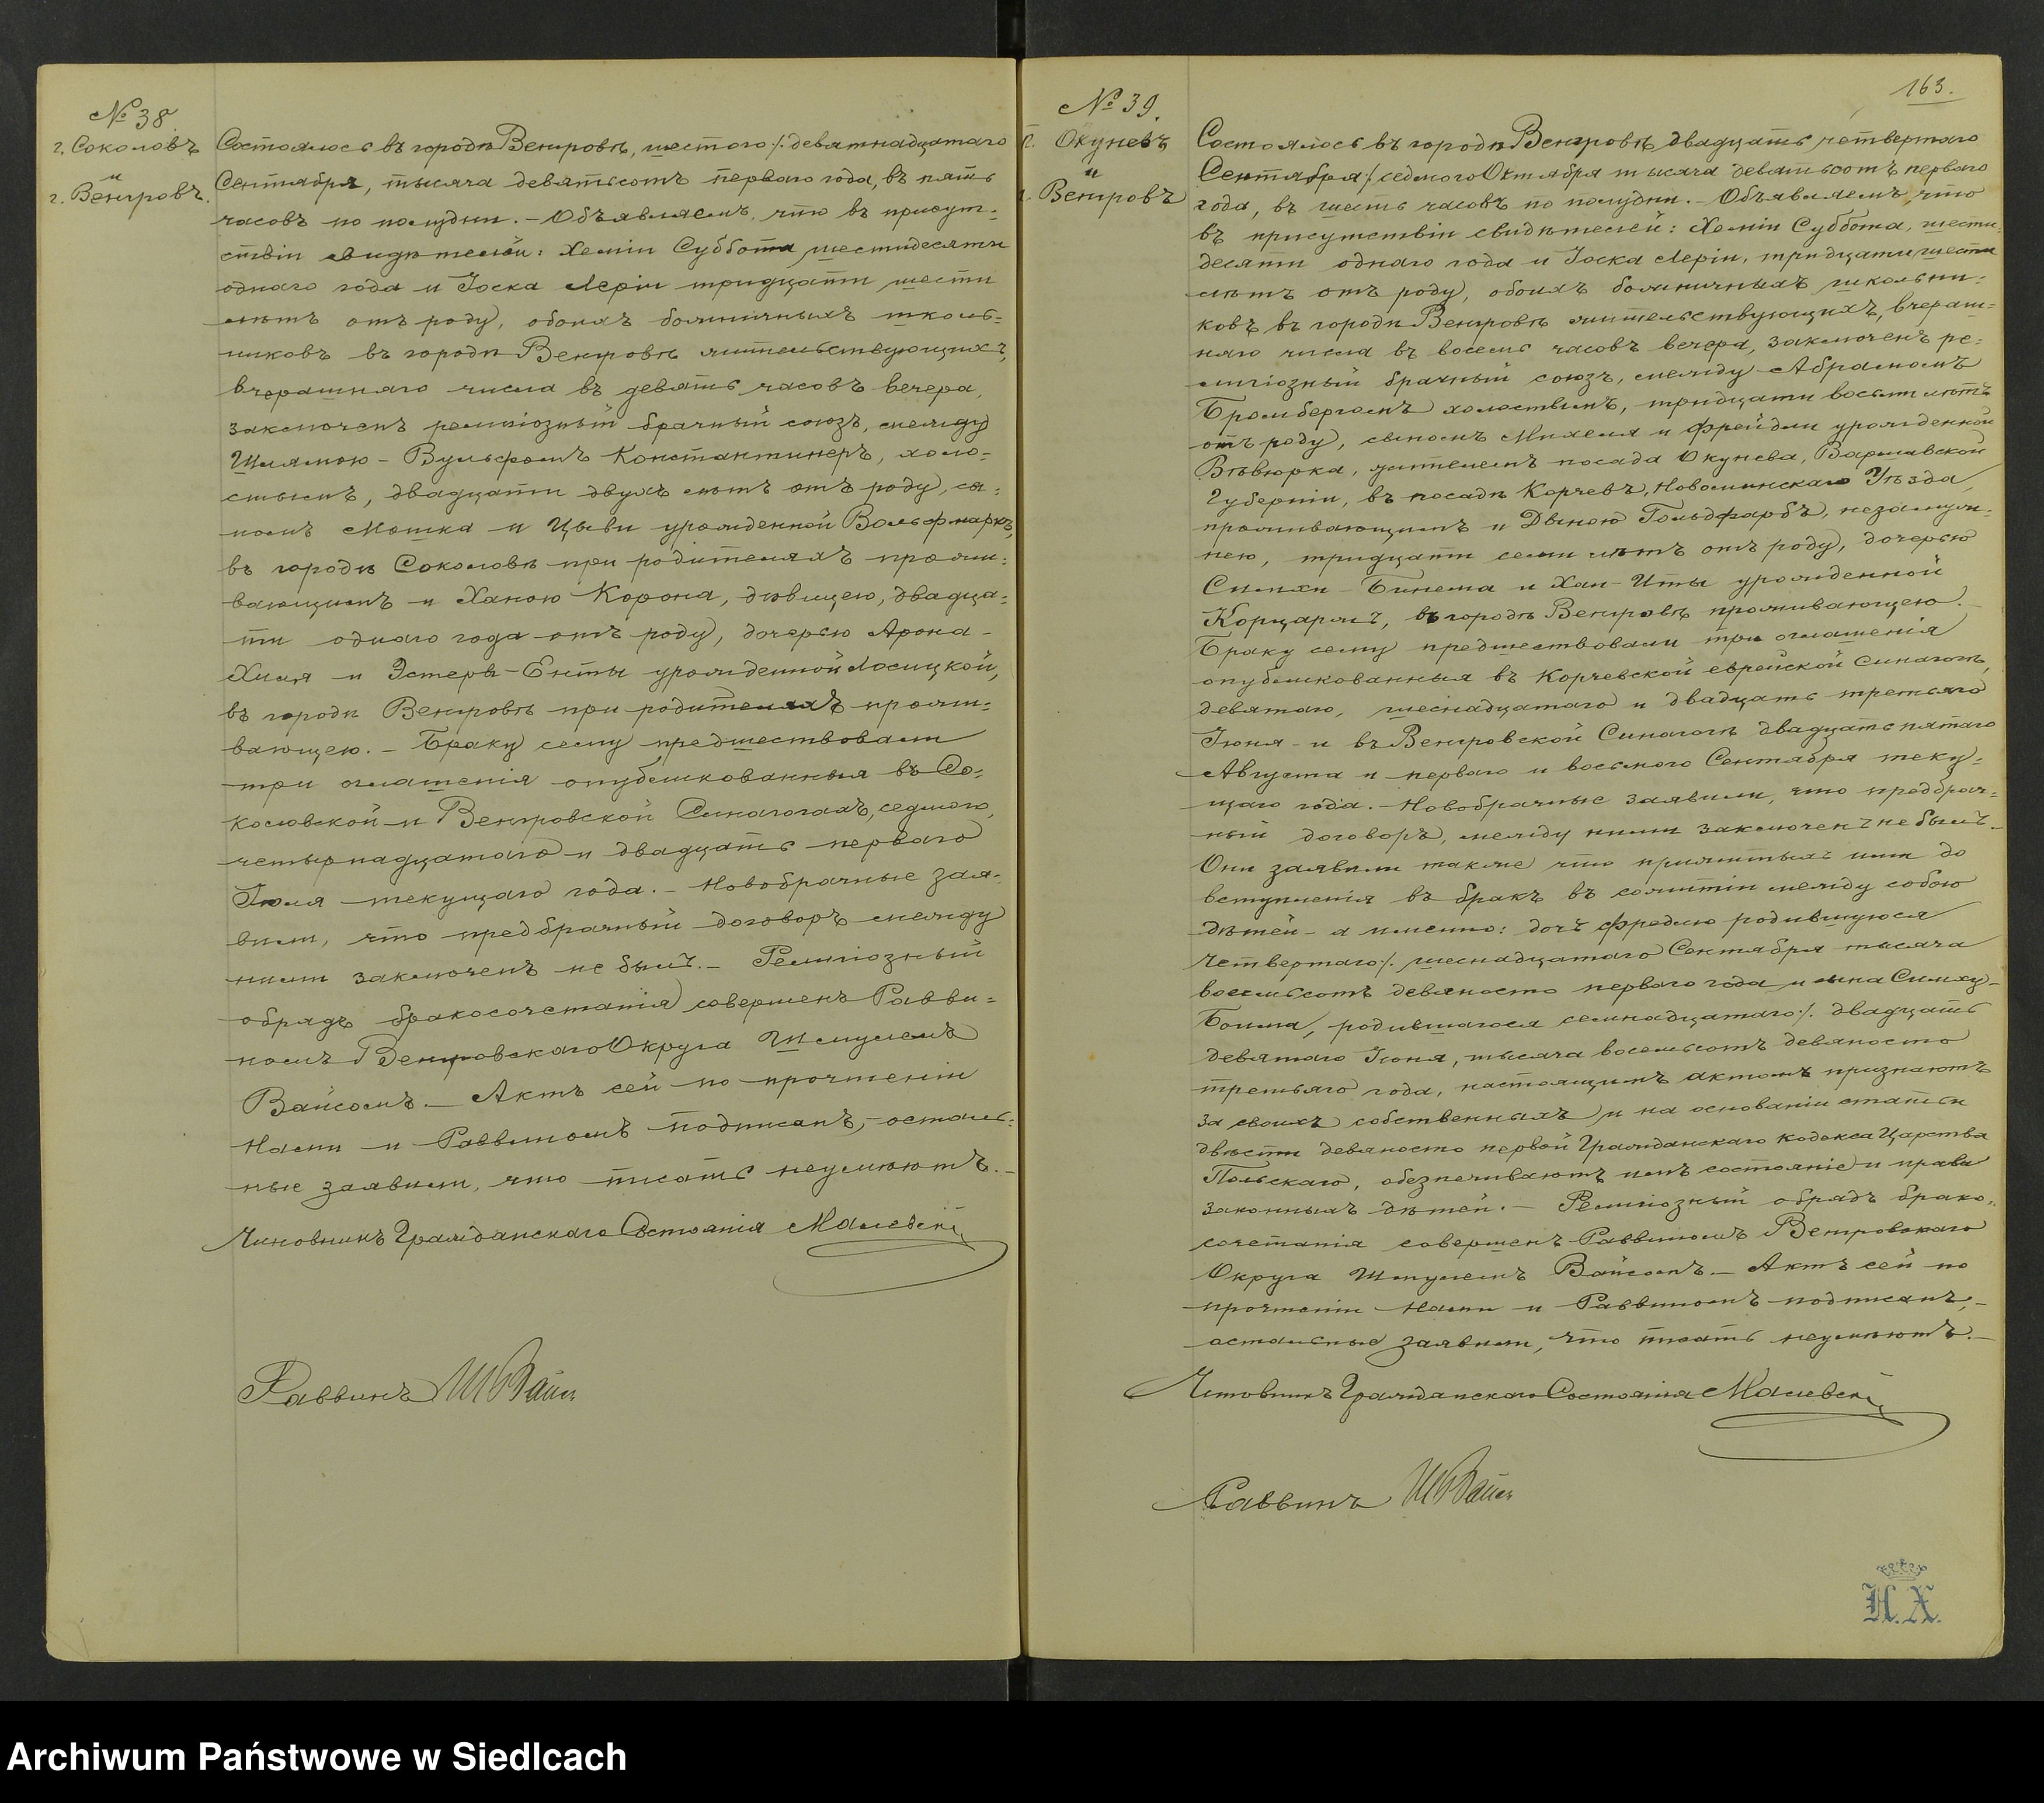 № 38
г. Соколовъ
и
г. Венгровъ.
Состоялось въ городѣ Венгровѣ, шестого /. девятнадцатаго
Сентября, тысяча девятьсотъ перваго года, въ пять
часовъ по полудни. – Объявляемъ, что въ присут-
ствіи свидѣтелей: Хеміи Суббота шестидесяти
одного года и Іоска Леріи тридцати шести
лѣтъ отъ роду, обоихъ больничныхъ школь-
никовъ въ городѣ Венгровѣ жительствующихъ,
вчерашняго числа въ девять часовъ вечера,
заключенъ религіозный брачный союзъ, между
Шлямою - Вульфомъ Константинеръ, холо-
стымъ, двадцати двухъ лѣтъ отъ роду, сы-
номъ Мошка и Цыви урожденной Вольфмаркъ,
въ городѣ Соколовѣ при родителяхъ прожи-
вающимъ и Ханою Корона, дѣвицею, двадца-
ти одного года отъ роду, дочерью Арона -
Хиля и Эстеры-Енты урожденной Лосицкой,
въ городѣ Венгровѣ при родителяхъ прожи-
вающею. – Браку сему предшествовали
три оглашенія опубликованныя въ Со-
коловской и Венгровской Синагогахъ, седьмого,
четырнадцатаго и двадцать перваго
Іюля текущаго года. – Новобрачные зая-
вили, что предбрачный договоръ между
ними заключенъ не былъ. – Религіозный
обрядъ бракосочетанія совершенъ Равви-
номъ Венгровскаго Округа Шмулемъ
Вайсомъ. – Актъ сей по прочтеніи
Нами и Раввиномъ подписанъ, – осталь-
ные заявили, что писать неумѣютъ. –
Чиновникъ Гражданскаго Состоянія Малевскій
Раввинъ Ш Вайсъ
163.
№ 39.
п. Окуневъ
и
г. Венгровъ
Состоялось въ городѣ Венгровѣ двадцать четвертаго
Сентября /. седьмого Октября тысяча девятьсотъ перваго
года, въ шесть часовъ по полудни. – Объявляемъ, что
въ присутствіи свидѣтелей: Хеміи Суббота, шести-
десяти одного года и Іоска Леріи, тридцати шести
лѣтъ отъ роду, обоихъ больничныхъ школьни-
ковъ въ городѣ Венгровѣ жительствующихъ, вчераш-
няго числа въ восемь часовъ вечера, заключенъ ре-
лигіозный брачный союзъ, между Абрамомъ
Бромбергомъ холостымъ, тридцати восьми лѣтъ
отъ роду, сыномъ Михеля и Фрейдли урожденной
Вѣвюрка, жителемъ посада Окунева, Варшавской
Губерніи, въ посадѣ Корчевъ, Новоминскаго Уѣзда,
проживающимъ и Двыною Гольдфарбъ, незамуж-
нею, тридцати семи лѣтъ отъ роду, дочерью
Симхи - Бинема и Хаи - Иты урожденной
Корцаржъ, въ городѣ Венгровѣ проживающею. –
Браку сему предшествовали три оглашенія
опубликованныя въ Корчевской еврейской Синагогѣ,
девятаго, шеснадцатаго и двадцать третьяго
Іюня - и въ Венгровской Синагогѣ двадцать пятаго
Августа и перваго и восьмого Сентября теку-
щаго года. – Новобрачные заявили, что предбрач-
ный договоръ, между ними заключенъ не былъ. –
Они заявили также что прижитыхъ ими до
вступленія въ бракъ въ сожитіи между собою
дѣтей – а именно: дочь Фредлю родившуюся
четвертаго /. шеснадцатаго Сентября тысяча
восемьсотъ девяносто перваго года и сына Симху-
Боима, родившагося семнадцатаго /. двадцать
девятаго Іюня, тысяча восемьсотъ девяносто
третьяго года, настоящимъ актомъ признаютъ
за своихъ собственныхъ и на основаніи статьи
двѣсти девяносто первой Гражданскаго кодекса Царства
Польскаго, обезпечиваютъ имъ состояніе и права
законныхъ дѣтей. – Религіозный обрядъ брако-
сочетанія совершенъ Раввиномъ Венгровскаго
Округа Шмулемъ Вайсомъ. – Актъ сей по
прочтеніи Нами и Раввиномъ подписанъ, –
остальные заявили, что писать неумѣютъ. –
Чиновникъ Гражданскаго Состоянія Малевскій
Раввинъ Ш Вайсъ
Н.Х.
Archiwum Państwowe w Siedlcach